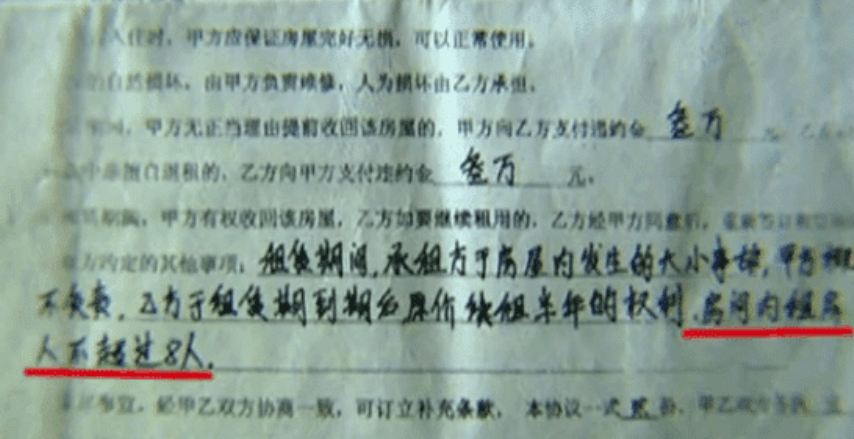 入住时，甲方应保证房屋完好无损，可以正常使用。
自然损坏，由甲方负责维修，人为损坏由乙方承担。
甲方无正当理由提前收回该房屋的，甲方向乙方支付违约金 叁万 元，乙
擅自退租的，乙方向甲方支付违约金 叁万 元。
期满，甲方有权收回该房屋，乙方如要继续租用的，乙方经甲方同意后，重新签订
方约定的其他事项：租赁期间，承租方于房屋内发生的大小事故，甲方概
不负责，乙方于租赁期到期后原价续租半年的权利，房间内租房
人不超过8人。
事宜，经甲乙双方协商一致，可订立补充条款，本协议一式 贰 份，甲乙双方各执